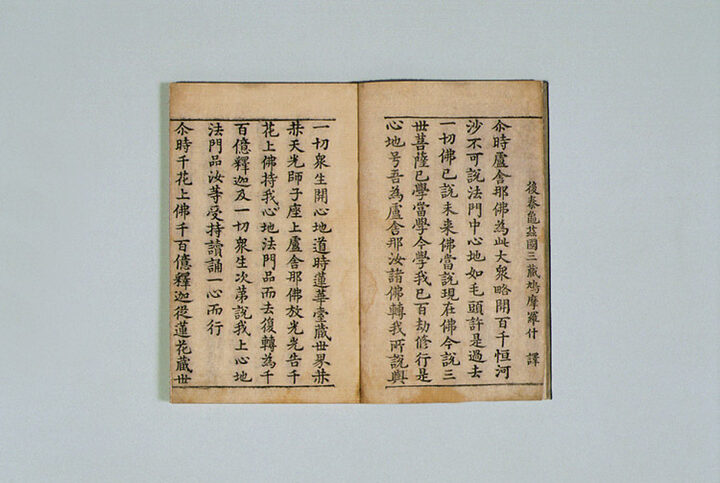 後秦龜茲國三藏鳩摩羅什 譯
尒時盧舍那佛為此大衆略開百千恒河
沙不可說法門中心地如毛頭許是過去
一切佛已說未來佛當說現在佛今說三
世菩薩已學當學今學我已百劫修行是
心地号吾為盧舍那汝諸佛轉我所說與
一切衆生開心地道時蓮華臺藏世界赫
赫天光師子座上盧舍那佛放光光告千
花上佛持我心地法門品而去復轉為千
百億釋迦及一切衆生次第說我上心地
法門品汝等受持讀誦一心而行
尒時千花上佛千百億釋迦從蓮花藏世